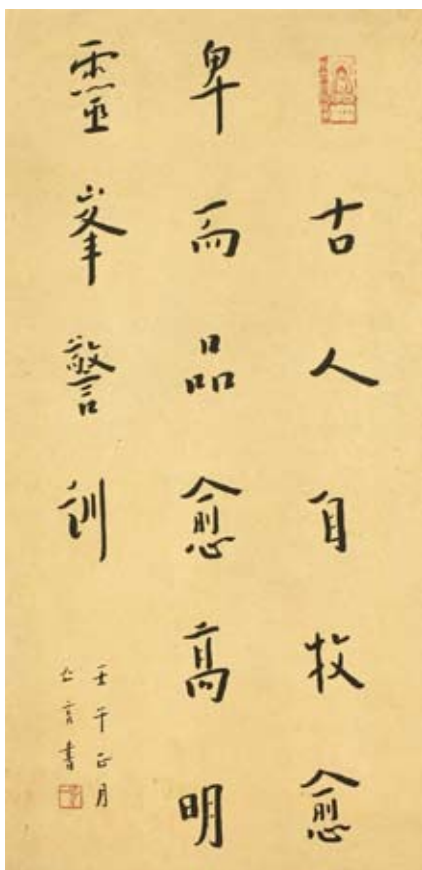 古人自牧愈
卑而品愈高明
靈峯警訓
壬午正月
亾言書